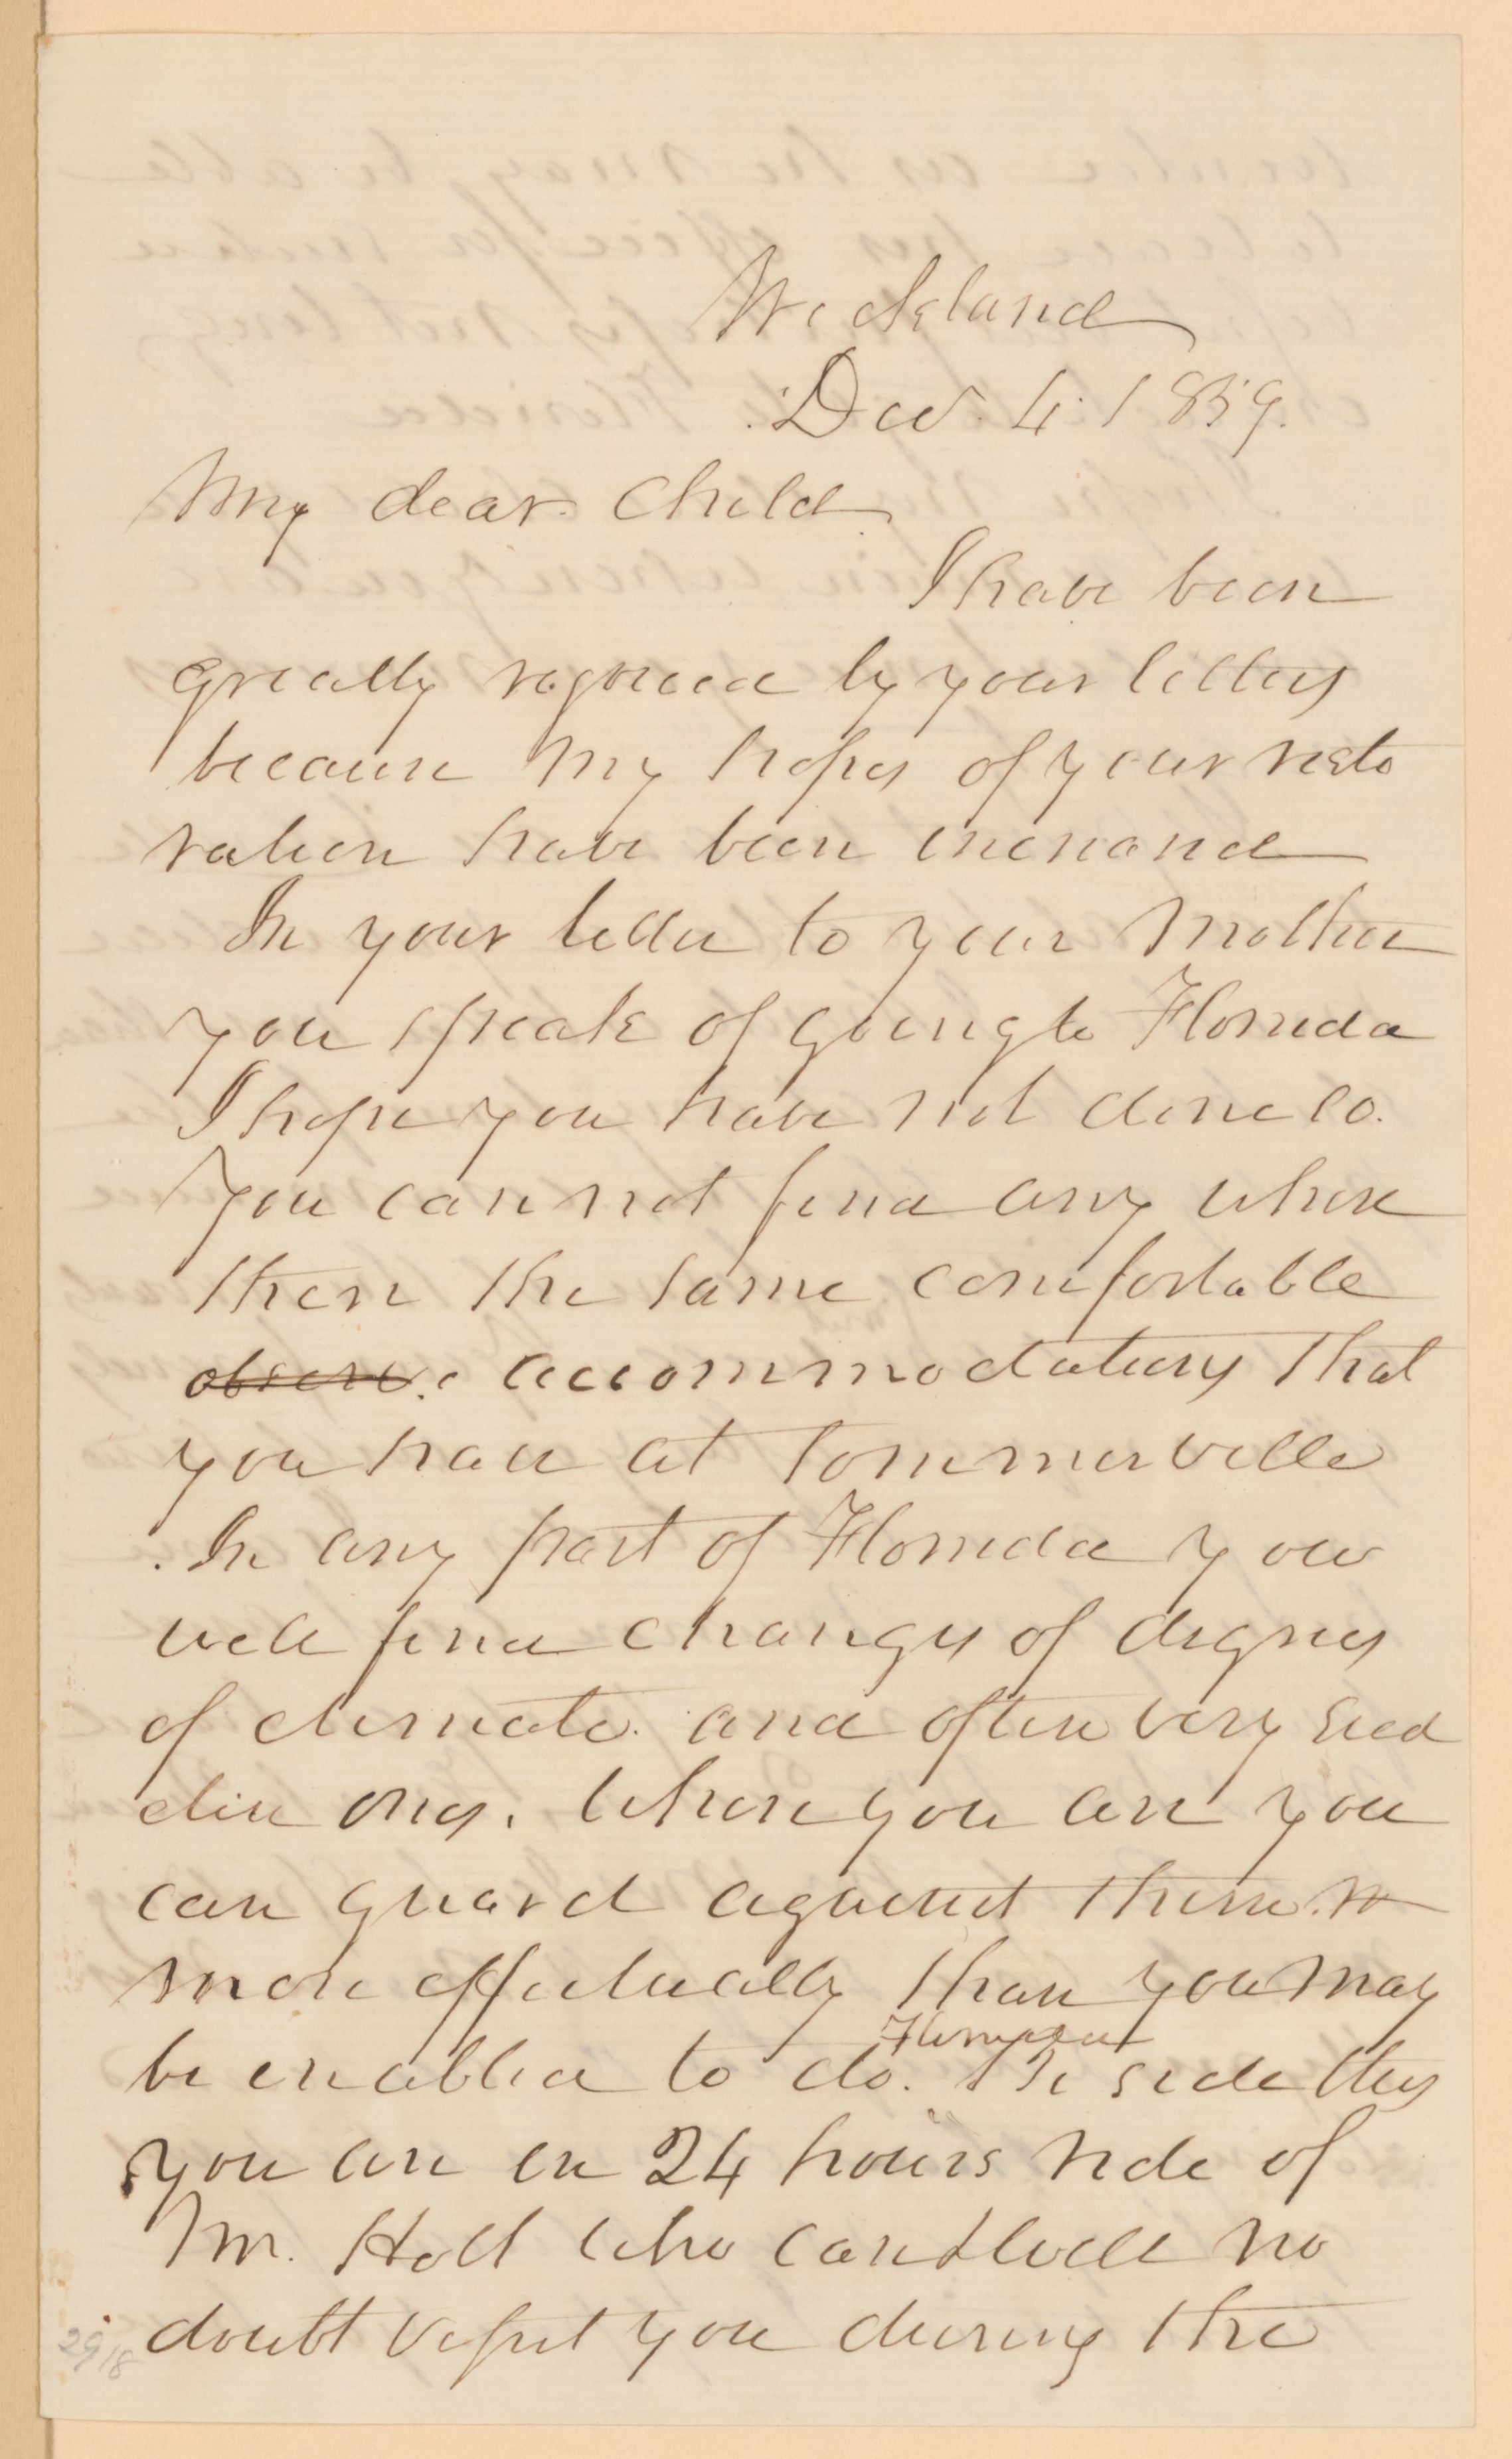 Wickland
Dec. 4. 1859.
My dear Child
I have been
greatly rejoiced by your letters
because my hopes of your resto
ration have been increased
In your letter to your Mother
you speak of going to Florida
I hope you have not done so.
You can not find any where
there the same comfortable
accommodations that
you have at Sommerville
In any part of Florida you
will find changes of degrees
of climate. and often very sud
den ones. Where you are you
can guard against them
more effectually than you may
be enabled to do. Besides this
you are in 24 hours ride of
Mr. Holt who can & will no
doubt visit you during the
2918